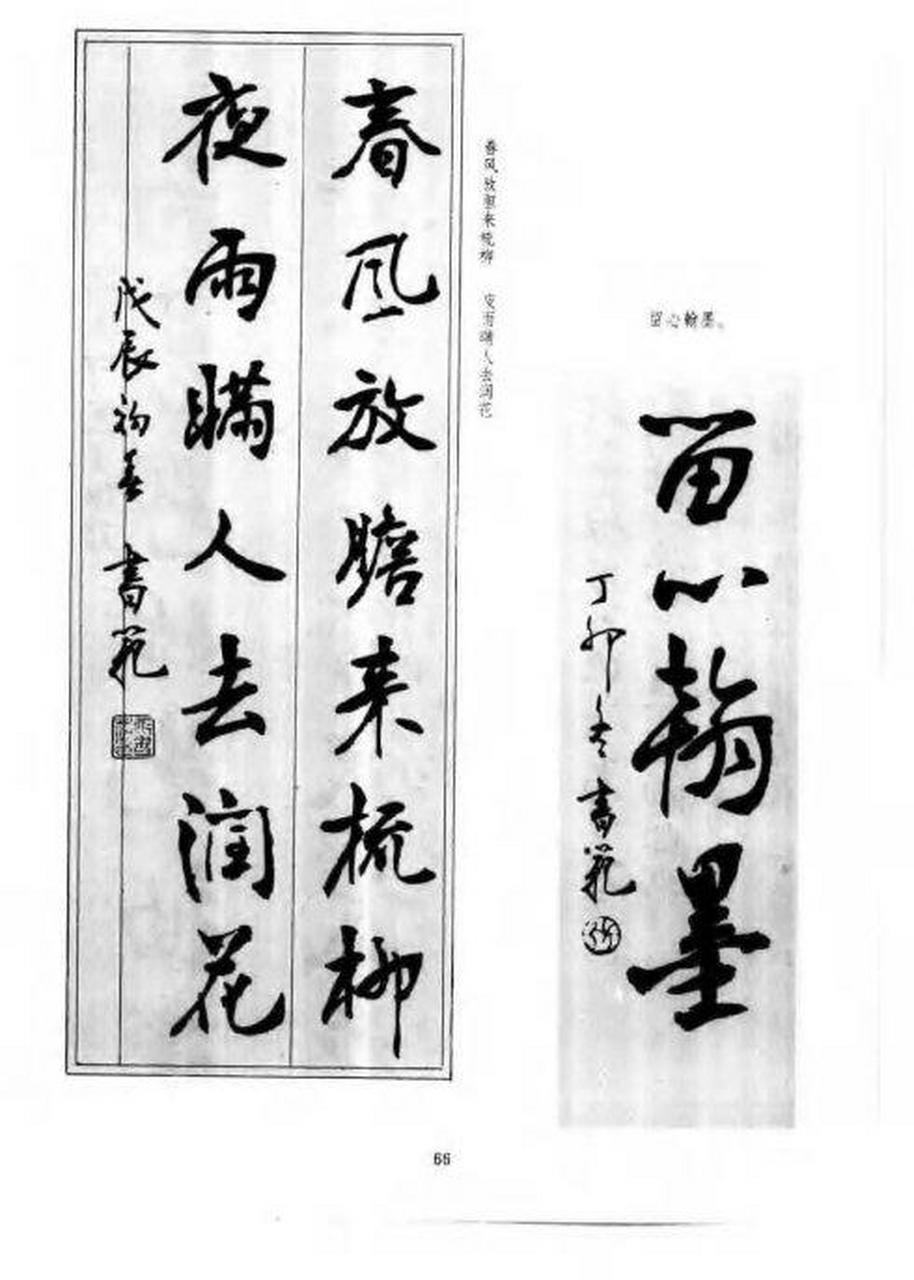 留心翰墨。
留心翰墨
丁卯冬书范
春风放胆来梳柳 夜雨瞒人去润花
春风放膽来梳柳
夜雨瞒人去润花
戊辰初春 書范
66